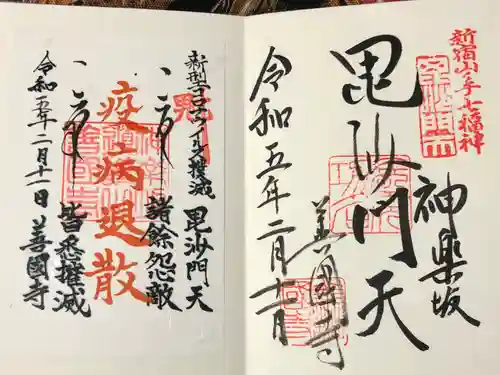 新宿山ノ手七福神
神楽坂
毘沙門天
善國寺
令和五年二月十一日
新型コロナウイルス撲滅
毘沙門天
諸餘怨敵
疫病退散
皆悉摧滅
善國寺
令和五年二月十一日